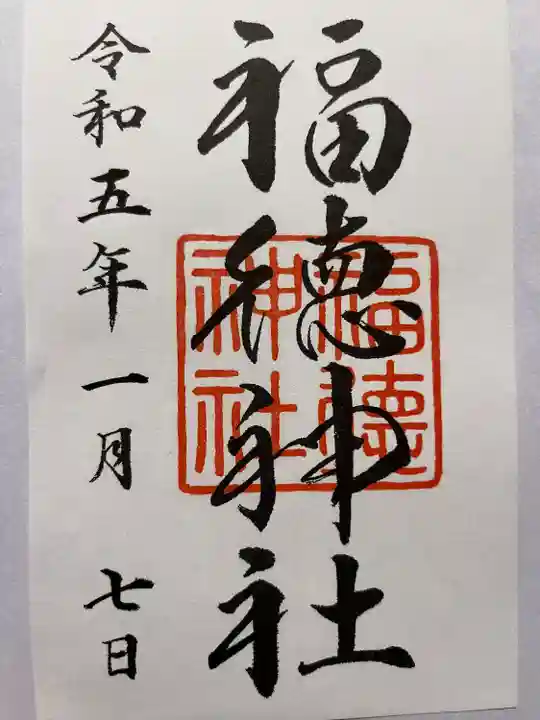 福徳神社
福徳神社
令和五年一月 七日